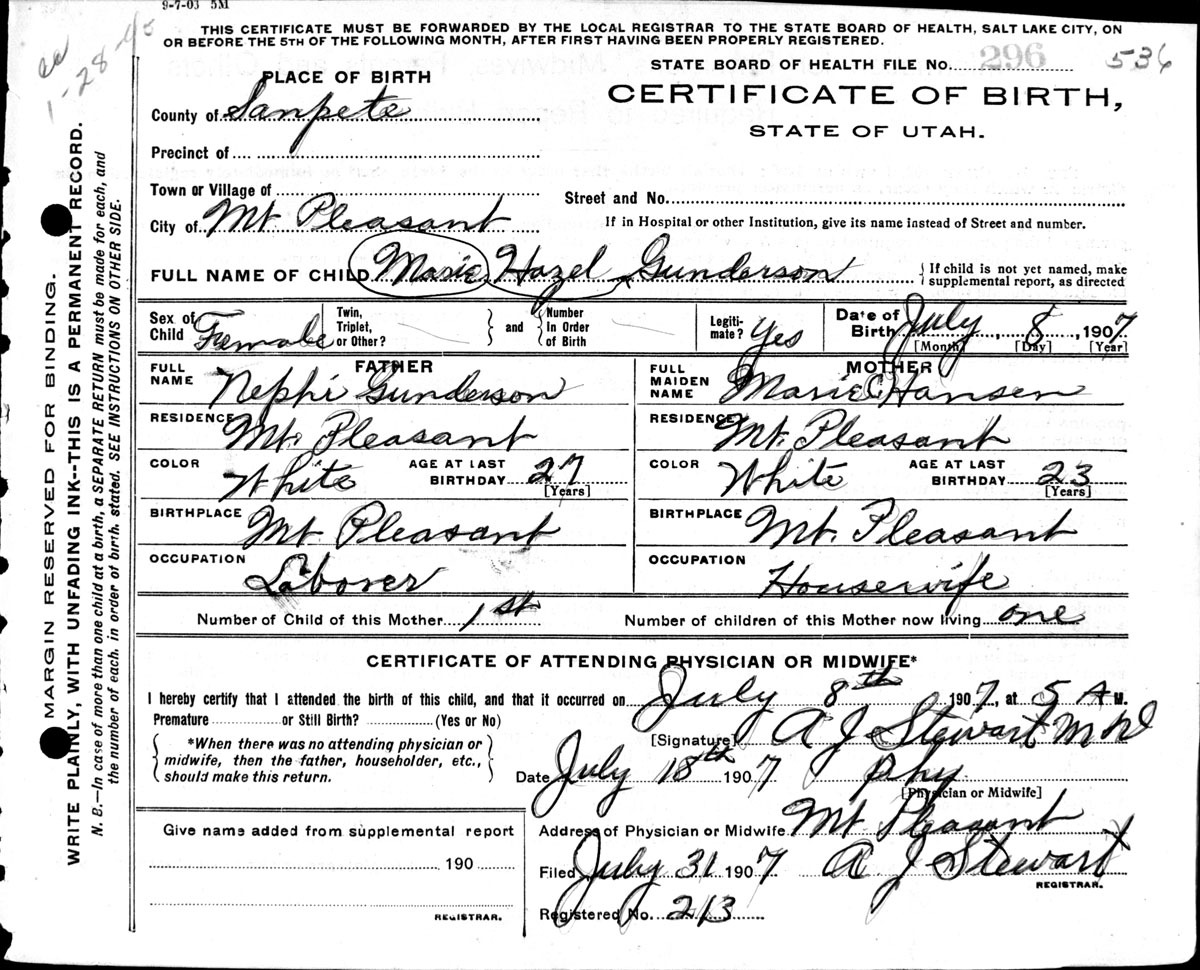 9-7-03 5M
THIS CERTIFICATE MUST BE FORWARDED BY THE LOCAL REGISTRAR TO THE STATE BOARD OF HEALTH, SALT LAKE CITY, ON
OR BEFORE THE 5TH OF THE FOLLOWING MONTH, AFTER FIRST HAVING BEEN PROPERLY REGISTERED.
1-28-45
STATE BOARD OF HEALTH FILE NO. 296 536
PLACE OF BIRTH
CERTIFICATE OF BIRTH,
STATE OF UTAH.
County of Sanpete
Precinct of
Town or Village of
Street and No.
City of Mt Pleasant
If in Hospital or other Institution, give its name instead of Street and number.
FULL NAME OF CHILD Marie Hazel Gunderson
{ If child is not yet named, make
supplemental report, as directed
Sex of Child Female
Twin, Triplet, or Other?
and
Number In Order of Birth
Legiti-mate? Yes
Date of Birth July 8, 1907
[Month] [Day] [Year]
FATHER
FULL NAME Nephi Gunderson
RESIDENCE Mt. Pleasant
COLOR White
AGE AT LAST BIRTHDAY 27 [Years]
BIRTHPLACE Mt Pleasant
OCCUPATION Laborer
MOTHER
FULL MAIDEN NAME Marie C Hansen
RESIDENCE Mt. Pleasant
COLOR White
AGE AT LAST BIRTHDAY 23 [Years]
BIRTHPLACE Mt. Pleasant
OCCUPATION Housewife
Number of Child of this Mother 1st
Number of children of this Mother now living one
CERTIFICATE OF ATTENDING PHYSICIAN OR MIDWIFE*
I hereby certify that I attended the birth of this child, and that it occurred on July 8th 1907, at 5 A M.
Premature or Still Birth? (Yes or No)
*When there was no attending physician or
midwife, then the father, householder, etc.,
should make this return.
[Signature] A J Stewart M D
Date July 18th 1907 Phy
[Physician or Midwife]
Give name added from supplemental report
190
REGISTRAR.
Address of Physician or Midwife Mt Pleasant
Filed July 31 1907 A J Stewart
REGISTRAR.
Registered No. 213
MARGIN RESERVED FOR BINDING.
WRITE PLAINLY, WITH UNFADING INK--THIS IS A PERMANENT RECORD.
N. B.—In case of more than one child at a birth, a SEPARATE RETURN must be made for each, and
the number of each, in order of birth, stated. SEE INSTRUCTIONS ON OTHER SIDE.